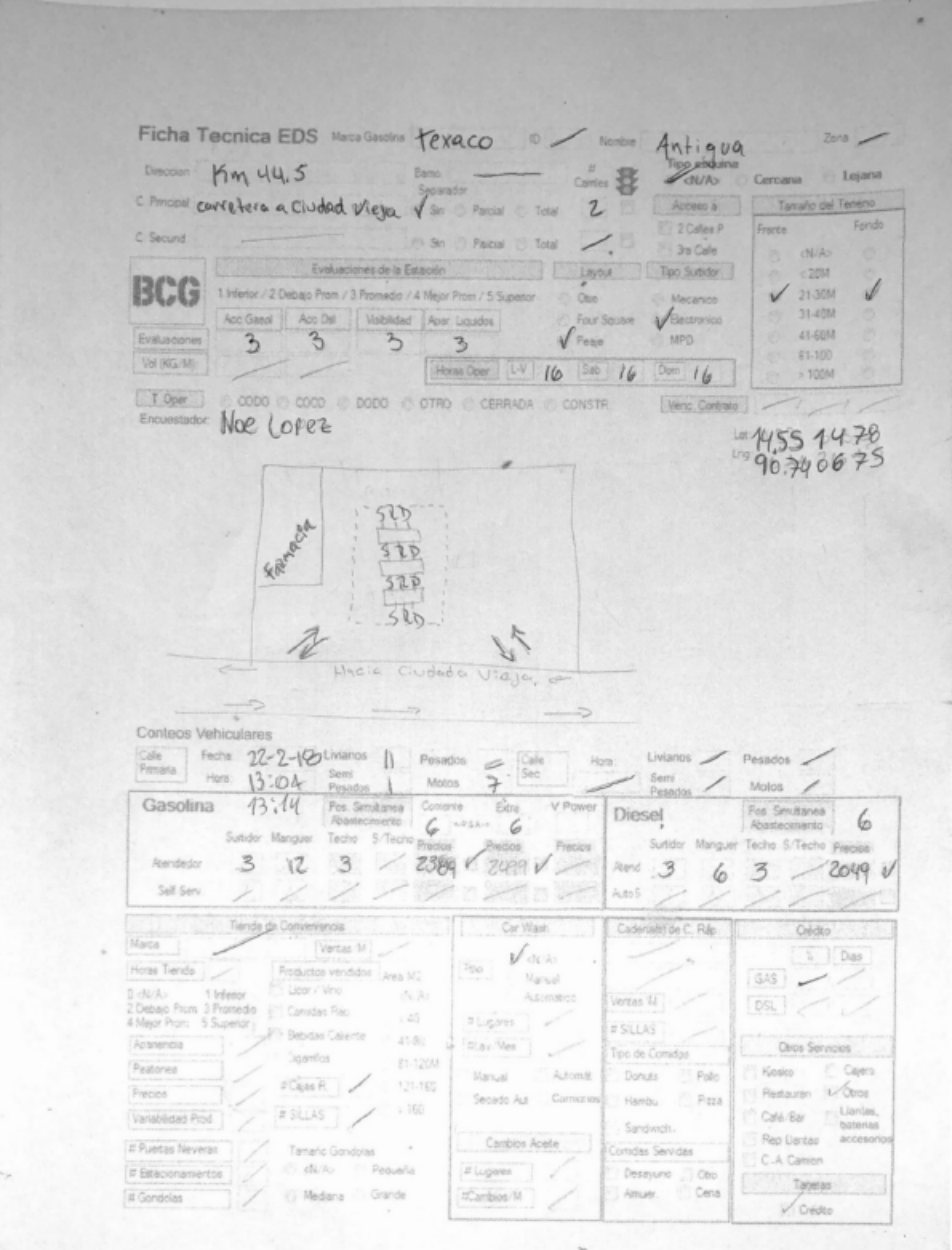 Ficha Tecnica EDS Marca Gasolina Texaco ID Nombre Antigua Zona
Direccion Km 44.5 Barrio # Carriles Tipo esquina <N/A> Cercana Lejana
Separador
C. Principal carretera a Ciudad Vieja Sin Parcial Total 2 Acceso a Tamaño del Terreno
C. Secund. Sin Parcial Total 2 Calles P Frente Fondo
3ra Calle <N/A>
BCG Evaluaciones de la Estación Layout Tipo Surtidor < 20M
1 Inferior / 2 Debajo Prom / 3 Promedio / 4 Mejor Prom / 5 Superior Otro Mecanico 21-30M
Acc Gasol Acc Dsl Visibilidad Apar. Liquidos Four Square Electronico 31-40M
Evaluaciones 3 3 3 3 Peaje MPD 41-60M
61-100
Vol (KG/M) Horas Oper L-V 16 Sab 16 Dom 16 > 100M
T. Oper CODO COCO DODO OTRO CERRADA CONSTR. Venc. Contrato
Encuestador: Noe Lopez
Lat 14.55 14 78
Lng 90.740675
Farmacia
SRD
SRD
SRD
SRD
Hacia Ciudada Vieja.
Conteos Vehiculares
Calle Primaria Fecha: 22-2-18 Livianos 11 Pesados Calle Sec Hora: Livianos Pesados
Hora: 13:04 Semi Pesados 1 Motos 7 Semi Pesados Motos
Gasolina 13:14 Pos. Simultanea Abastecimiento Corriente 6 Extra 6 V Power Diesel Pos. Simultanea Abastecimiento 6
Surtidor Manguer Techo S/Techo Precios Precios Precios Surtidor Manguer Techo S/Techo Precios
Atendedor 3 12 3 2389 2499 Atend 3 6 3 2049
Self Serv. Auto S
Tienda de Conveniencia Car Wash Cadena(s) de C. Ráp. Crédito
Marca Ventas /M Tipo <N/A> % Dias
Horas Tienda Productos vendidos Area M2 Manual GAS
0 <N/A> 1 Inferior Licor / Vino <N/A> Automatico Ventas /M DSL
2 Debajo Prom 3 Promedio Comidas Ráp
4 Mejor Prom: 5 Superior Bebidas Caliente # Lugares # SILLAS
Apariencia Cigarrillos 41-80 #Lav/Mes Tipo de Comidas Otros Servicios
Peatones 81-120M Manual Automát Donuts Pollo Kiosko Cajero
Precios #Cajas R. 121-160 Secado Aut Camiones Hambu Pizza Restauran Otros
Variabilidad Prod # SILLAS > 160 Sandwich. Café/Bar Llantas, baterias accesorios
# Puertas Neveras Tamaño Gondolas Cambios Aceite Comidas Servidas Rep Llantas
# Estacionamientos <N/A> Pequeña # Lugares Desayuno Otro C.A Camion
Tarjetas
# Gondolas Mediana Grande #Cambios/M Almuer. Cena Crédito